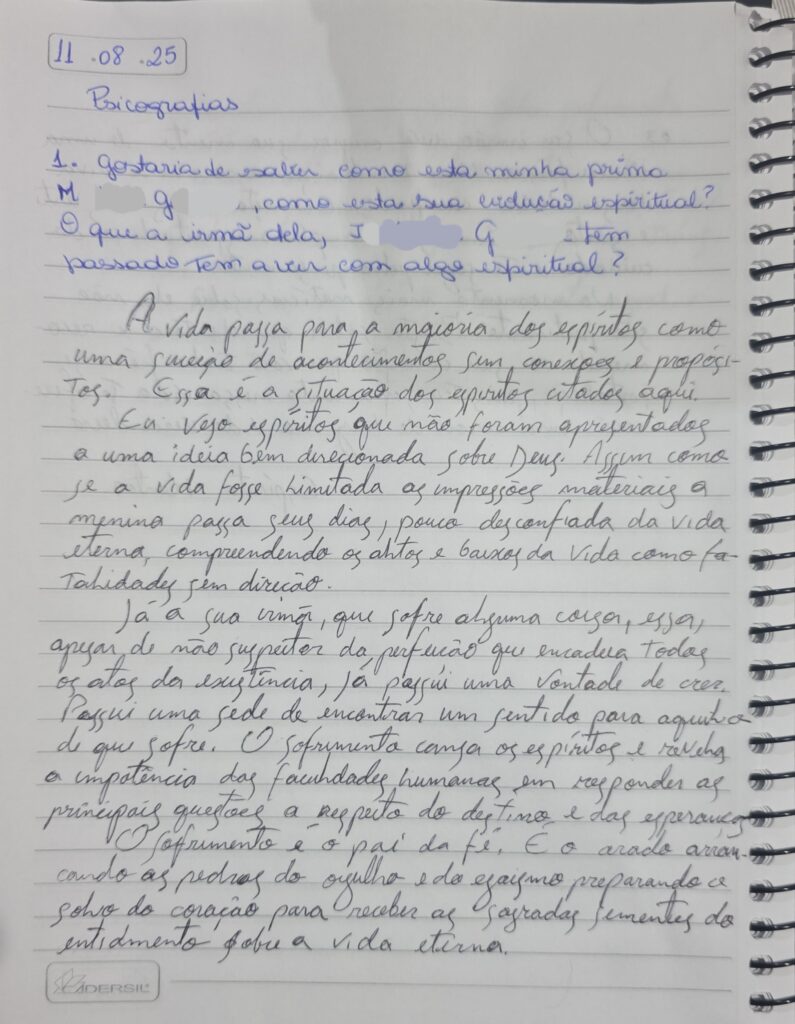 11.08.25
Psicografias
1. Gostaria de saber como esta minha prima
M G , como esta sua evolução espiritual?
O que a irmã dela, J G tem
passado tem a ver com algo espiritual?
A vida passa para a maioria dos espíritos como
uma suceção de acontecimentos sem conexões e propósi-
tos. Essa é a situação dos espíritos citados aqui.
Eu vejo espíritos que não foram apresentados
a uma ideia bem direcionada sobre Deus. Assim como
se a vida fosse limitada as impressões materiais a
menina passa seus dias, pouco desconfiada da vida
eterna, compreendendo os altos e baixos da vida como fa-
talidades sem direção.
Já a sua irmã, que sofre alguma coisa, essa,
apesar de não suspeitar da perfeição que encadeia todos
os atos da existência, já possui uma vontade de crer.
Possui uma sede de encontrar um sentido para aquilo
de que sofre. O sofrimento cansa os espíritos e revela
a impotência das faculdades humanas em responder as
principais questões a respeito do destino e das esperanças
O sofrimento é o pai da fé. É o arado arran-
cando as pedras do orgulho e do egoismo preparando o
solvo do coração para receber as sagradas sementes do
entidmento sobre a vida eterna.
CADERSIL